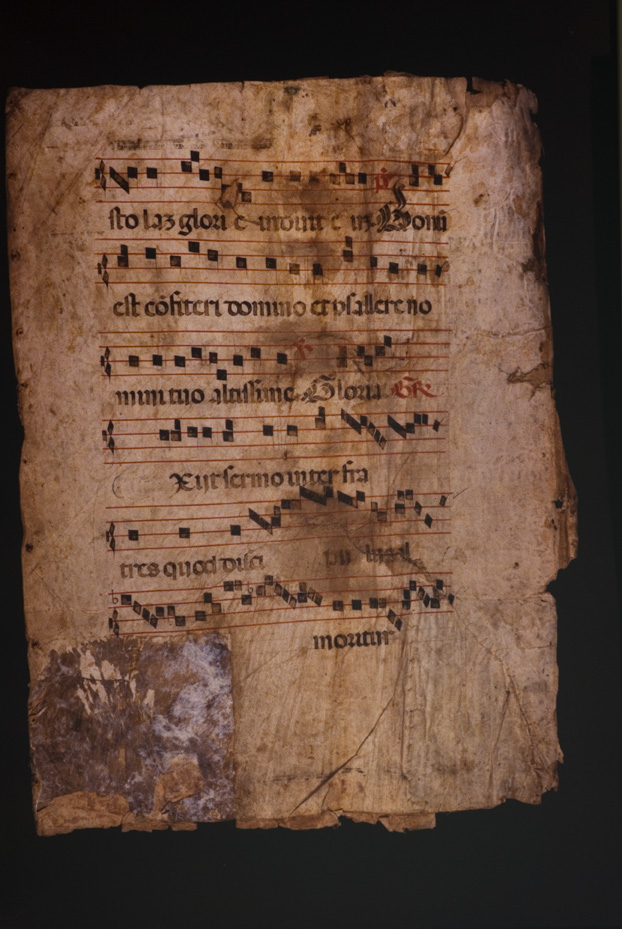 sto laz glori e induit e in Boni
est cōfiteri domino et psallere no
mini tuo altissime Gloria GR
Xiit sermo inter fra
tres quod disci pu
moritur